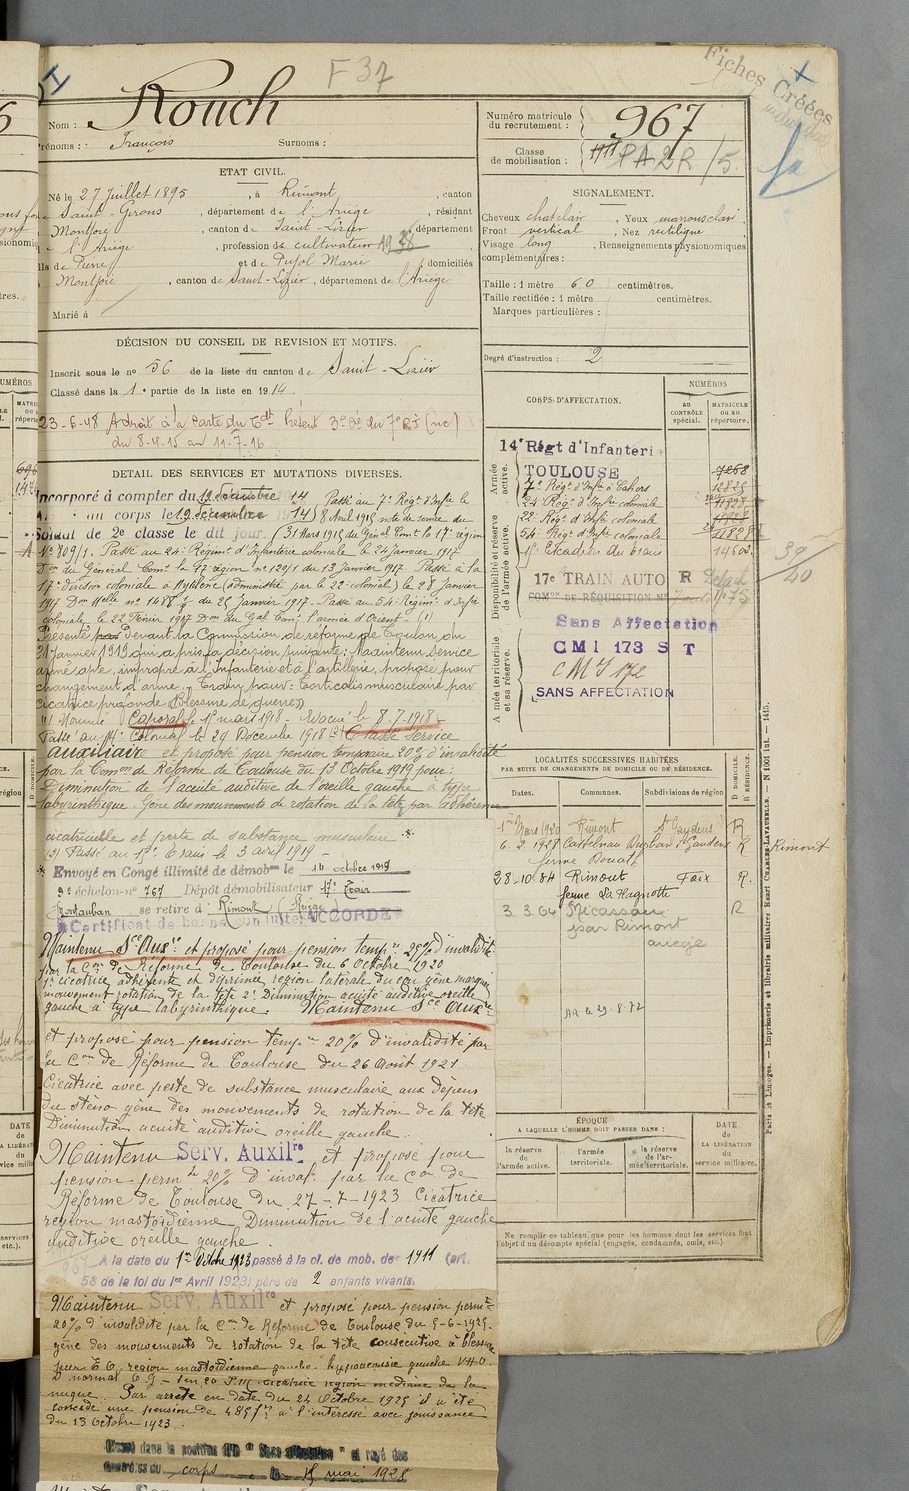 F 37
Fiches Créées
Nom : Rouch
Prénoms : François Surnoms :
Numéro matricule du recrutement : 967
Classe de mobilisation : 1911 PA 2R /5
ETAT CIVIL.
Né le 27 Juillet 1895, à Rimont, canton
de Saint-Girons, département de l'Ariège, résidant
à Montjoie, canton de Saint-Lizier, département
de l'Ariège, profession de cultivateur
fils de Pierre et de Pujol Marie, domiciliés
à Montjoie, canton de Saint-Lizier, département de l'Ariège
Marié à
SIGNALEMENT.
Cheveux chat clair, Yeux marrons clair
Front vertical, Nez rectiligne
Visage long, Renseignements physionomiques
complémentaires :
Taille : 1 mètre 60 centimètres.
Taille rectifiée : 1 mètre centimètres.
Marques particulières :
Degré d'instruction : 2
DÉCISION DU CONSEIL DE REVISION ET MOTIFS.
Inscrit sous le no 56 de la liste du canton de Saint-Lizier
Classé dans la 1e partie de la liste en 1914.
23-6-48 A droit à la carte du Cbt
du 8-4-15 au 11-7-16
DETAIL DES SERVICES ET MUTATIONS DIVERSES.
Incorporé à compter du 19 décembre 14 Passé au 7e Régt d'Infie le
au corps le 19 décembre 1914 8 Avril 1915 note de service du
Soldat de 2e classe le dit jour. (31 Mars 1915 du Génal Comt la 17e région
No 809/1. Passé au 24e Régiment d'Infanterie coloniale le 24 janvier 1917
Don du Général Comt la 17e région no 1209/1 du 13 Janvier 1917 Passé à la
17e division coloniale à Mytilène (administré par le 22e colonial) le 28 Janvier
1917 Don Melle no 1488 du 25 Janvier 1917. Passé au 54e Régimt d'Infie
coloniale le 22 Février 1917 Don du Gal Comt l'armée d'Orient - (1)
Présenté devant la Commission de réforme de Toulon du
31 Janvier 1919 qui a pris la décision suivante : Maintenu service
armé apte, impropre à l'Infanterie et à l'artillerie, proposé pour
changement d'arme - Train pour : Torticolis musculaire par
cicatrice profonde (Blessure de guerre)
(1) Nommé Caporal le 1er mars 1918 - Evacué le 8-7-1918 -
Passé au 4e Colonial le 24 Décembre 1918 (2) Classé service
auxiliaire et proposé pour pension temporaire 20% d'invalidité
par la Comon de Réforme de Toulouse du 13 Octobre 1919 pour :
Diminution de l'acuité auditive de l'oreille gauche à type
labyrinthique. Gêne des mouvements de rotation de la tête par adhérence
cicatricielle et perte de substance musculaire.
(2) Passé au 17e Train le 3 avril 1919 -
Envoyé en Congé illimité de démobon le 14 octobre 1919
8e échelon - no 767 Dépôt démobilisateur 17e Train
Montauban se retire à Rimont (Ariège)
Certificat de bonne conduite ACCORDÉ
Maintenu Sce Auxre et proposé pour pension tempre 25% d'invalidité
par la Con de Réforme de Toulouse du 6 Octobre 1920
1o cicatrice adhérente et déprimée région latérale du cou gêne marquée
mouvement rotation de la tête 2o Diminution acuité auditive oreille
gauche à type labyrinthique. Maintenu Sce Auxre
et proposé pour pension tempre 20% d'invalidité par
la Con de Réforme de Toulouse du 26 Août 1921
Cicatrice avec perte de substance musculaire aux dépens
du sterno gêne des mouvements de rotation de la tête
Diminution acuité auditive oreille gauche.
Maintenu Serv. Auxilre et proposé pour
pension perm. 20% d'inval. par la Con de
Réforme de Toulouse du 27-7-1923 Cicatrice
région mastoïdienne. Diminution de l'acuité gauche
auditive oreille gauche.
A la date du 1er Octobre 1923 passé à la cl. de mob. de 1911 (art.
58 de la loi du 1er Avril 1923) père de 2 enfants vivants.
Maintenu Serv. Auxilre et proposé pour pension permte
20% d'invalidité par la Con de Réforme de Toulouse du 5-6-1925.
gêne des mouvements de rotation de la tête consécutive à blessure
par E O région mastoïdienne gauche. hypoacousie gauche
cicatrice région médiane de la
nuque. Par arrêté en date du 24 Octobre 1925 il a été
concédé une pension de 485 frs à l'intéressé avec jouissance
du 13 Octobre 1923.
Classé dans la position dite "Sans affectation" et rayé des
contrôles du corps le 15 mai 1928
CORPS D'AFFECTATION.
NUMÉROS
au CONTRÔLE spécial.
MATRICULE ou au répertoire.
Armée active.
14e Régt d'Infanterie
TOULOUSE 7268
7e Régt d'Infie à Cahors 12825
24e Régt d'Infie coloniale 11828
22e Régt d'Infie coloniale
54e Régt d'Infie coloniale 11828
17e Escadron du train
Disponibilité et réserve de l'armée active.
17e TRAIN AUTO R
COMon DE RÉQUISITION No
39/40
Sans Affectation
CMI 173 S T
CMI 172
SANS AFFECTATION
Armée territoriale et sa réserve.
LOCALITÉS SUCCESSIVES HABITÉES
PAR SUITE DE CHANGEMENTS DE DOMICILE OU DE RÉSIDENCE.
Dates. Communes. Subdivisions de région D. DOMICILE. R. RÉSIDENCE.
1er Mars 1920 Rimont St Gaudens R
6.2.1928 Castelnau Durban St Gaudens R Rimont
ferme Douath
28-10-34 Rimont Foix R.
ferme La Hagnotte
3.3.64 Micassau R
par Rimont
ariège
AR le 29.8.72
ÉPOQUE
A LAQUELLE L'HOMME DOIT PASSER DANS :
la réserve de l'armée active.
l'armée territoriale.
la réserve de l'armée territoriale.
DATE de LA LIBÉRATION du service militaire.
Ne remplir ce tableau que pour les hommes dont les services font
l'objet d'un décompte spécial (engagés, condamnés, omis, etc.).
Paris et Limoges. — Imprimerie et librairie militaires Henri CHARLES-LAVAUZELLE. — N 1001 Int. — 1415.